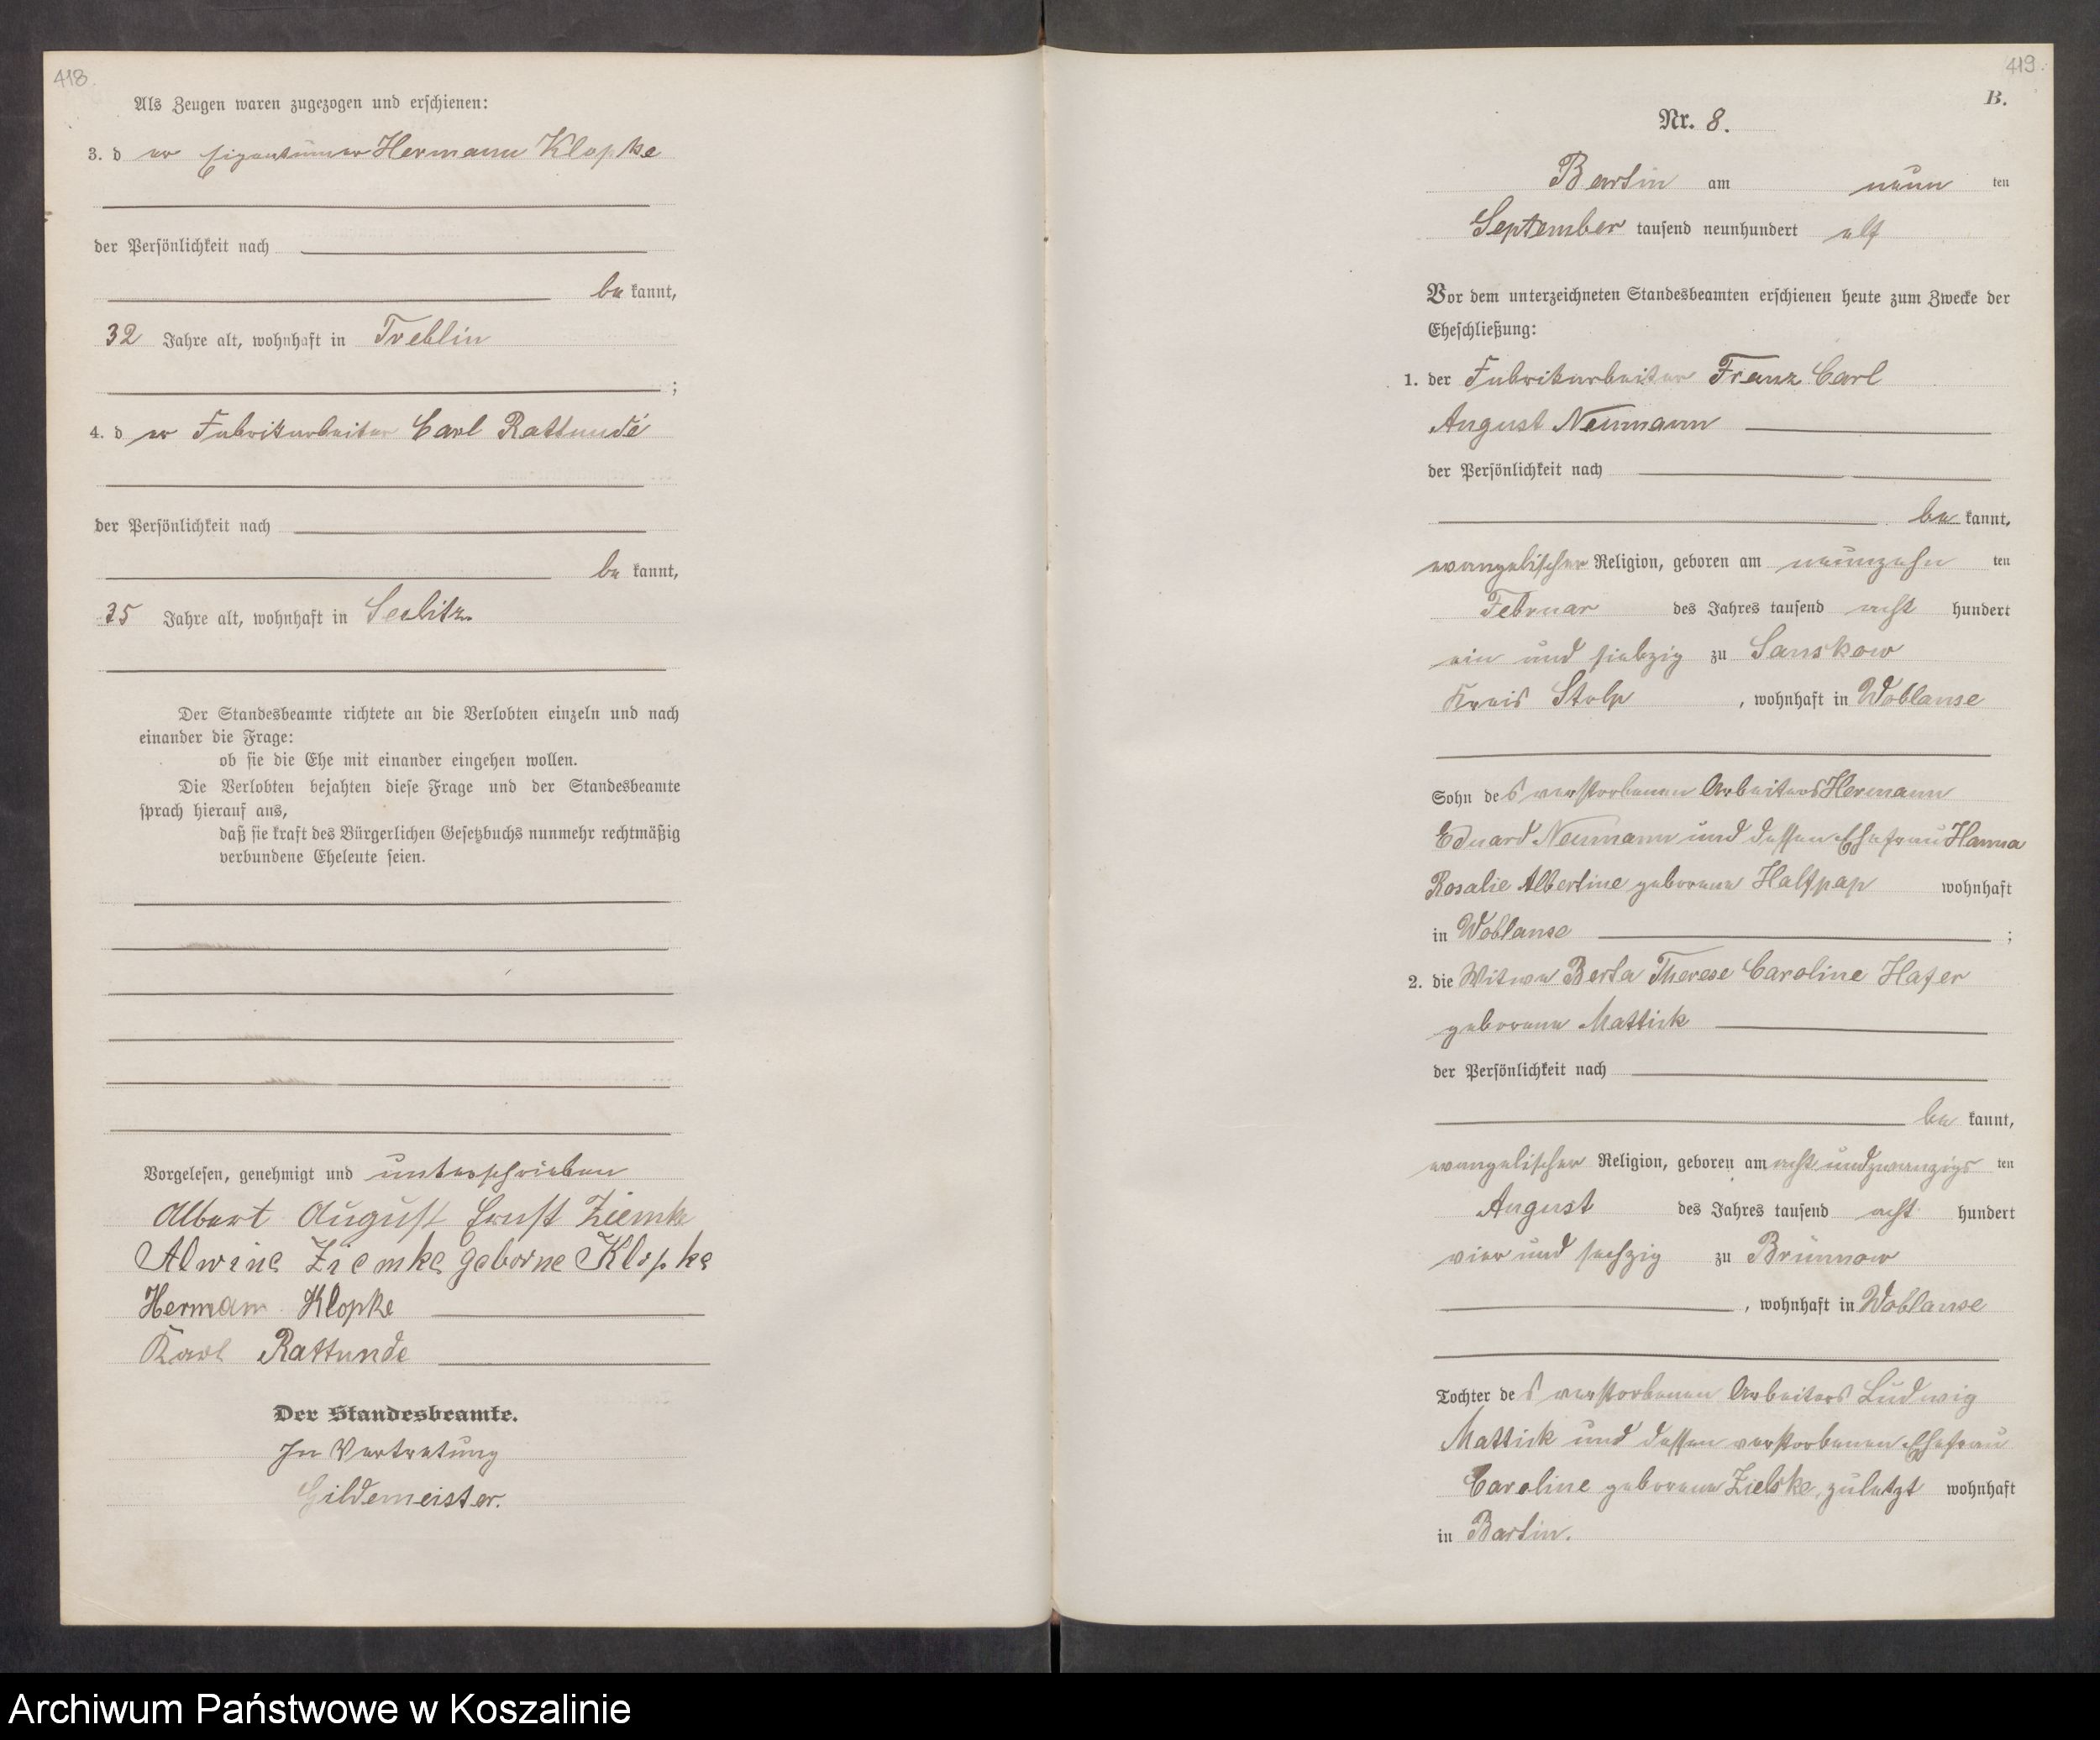 418.
Als Zeugen waren zugezogen und erschienen:
3. d er Eigentümer Hermann Klopke
der Persönlichkeit nach
be kannt,
32 Jahre alt, wohnhaft in Treblin
;
4. d er Fabrikarbeiter Carl Rattunde
der Persönlichkeit nach
be kannt,
35 Jahre alt, wohnhaft in Seelitz
Der Standesbeamte richtete an die Verlobten einzeln und nach
einander die Frage:
ob sie die Ehe mit einander eingehen wollen.
Die Verlobten bejahten diese Frage und der Standesbeamte
sprach hierauf aus,
daß sie kraft des Bürgerlichen Gesetzbuchs nunmehr rechtmäßig
verbundene Eheleute seien.
Vorgelesen, genehmigt und unterschrieben
Albert August Ernst Ziemke
Alwine Ziemke geborne Klopke
Herman Klopke
Karl Rattunde
Der Standesbeamte.
In Vertretung
Gildemeister.
419.
B.
Nr. 8.
Bartin am neun ten
September tausend neunhundert elf
Vor dem unterzeichneten Standesbeamten erschienen heute zum Zwecke der
Eheschließung:
1. der Fabrikarbeiter Franz Carl
August Neumann
der Persönlichkeit nach
be kannt,
evangelischer Religion, geboren am neunzehn ten
Februar des Jahres tausend acht hundert
ein und siebzig zu Sanskow
Kreis Stolp , wohnhaft in Woblanse
Sohn des verstorbenen Arbeiters Hermann
Eduard Neumann und dessen Ehefrau Hanna
Rosalie Albertine geborene Halfpap wohnhaft
in Woblanse ;
2. die Witwe Berta Therese Caroline Hafer
geborene Mattick
der Persönlichkeit nach
be kannt,
evangelischer Religion, geboren am acht und zwanzigs ten
August des Jahres tausend acht hundert
vier und sechzig zu Brünnow
, wohnhaft in Woblanse
Tochter des verstorbenen Arbeiters Ludwig
Mattick und dessen verstorbenen Ehefrau
Caroline geborene Zielske, zuletzt wohnhaft
in Bartin.
Archiwum Państwowe w Koszalinie